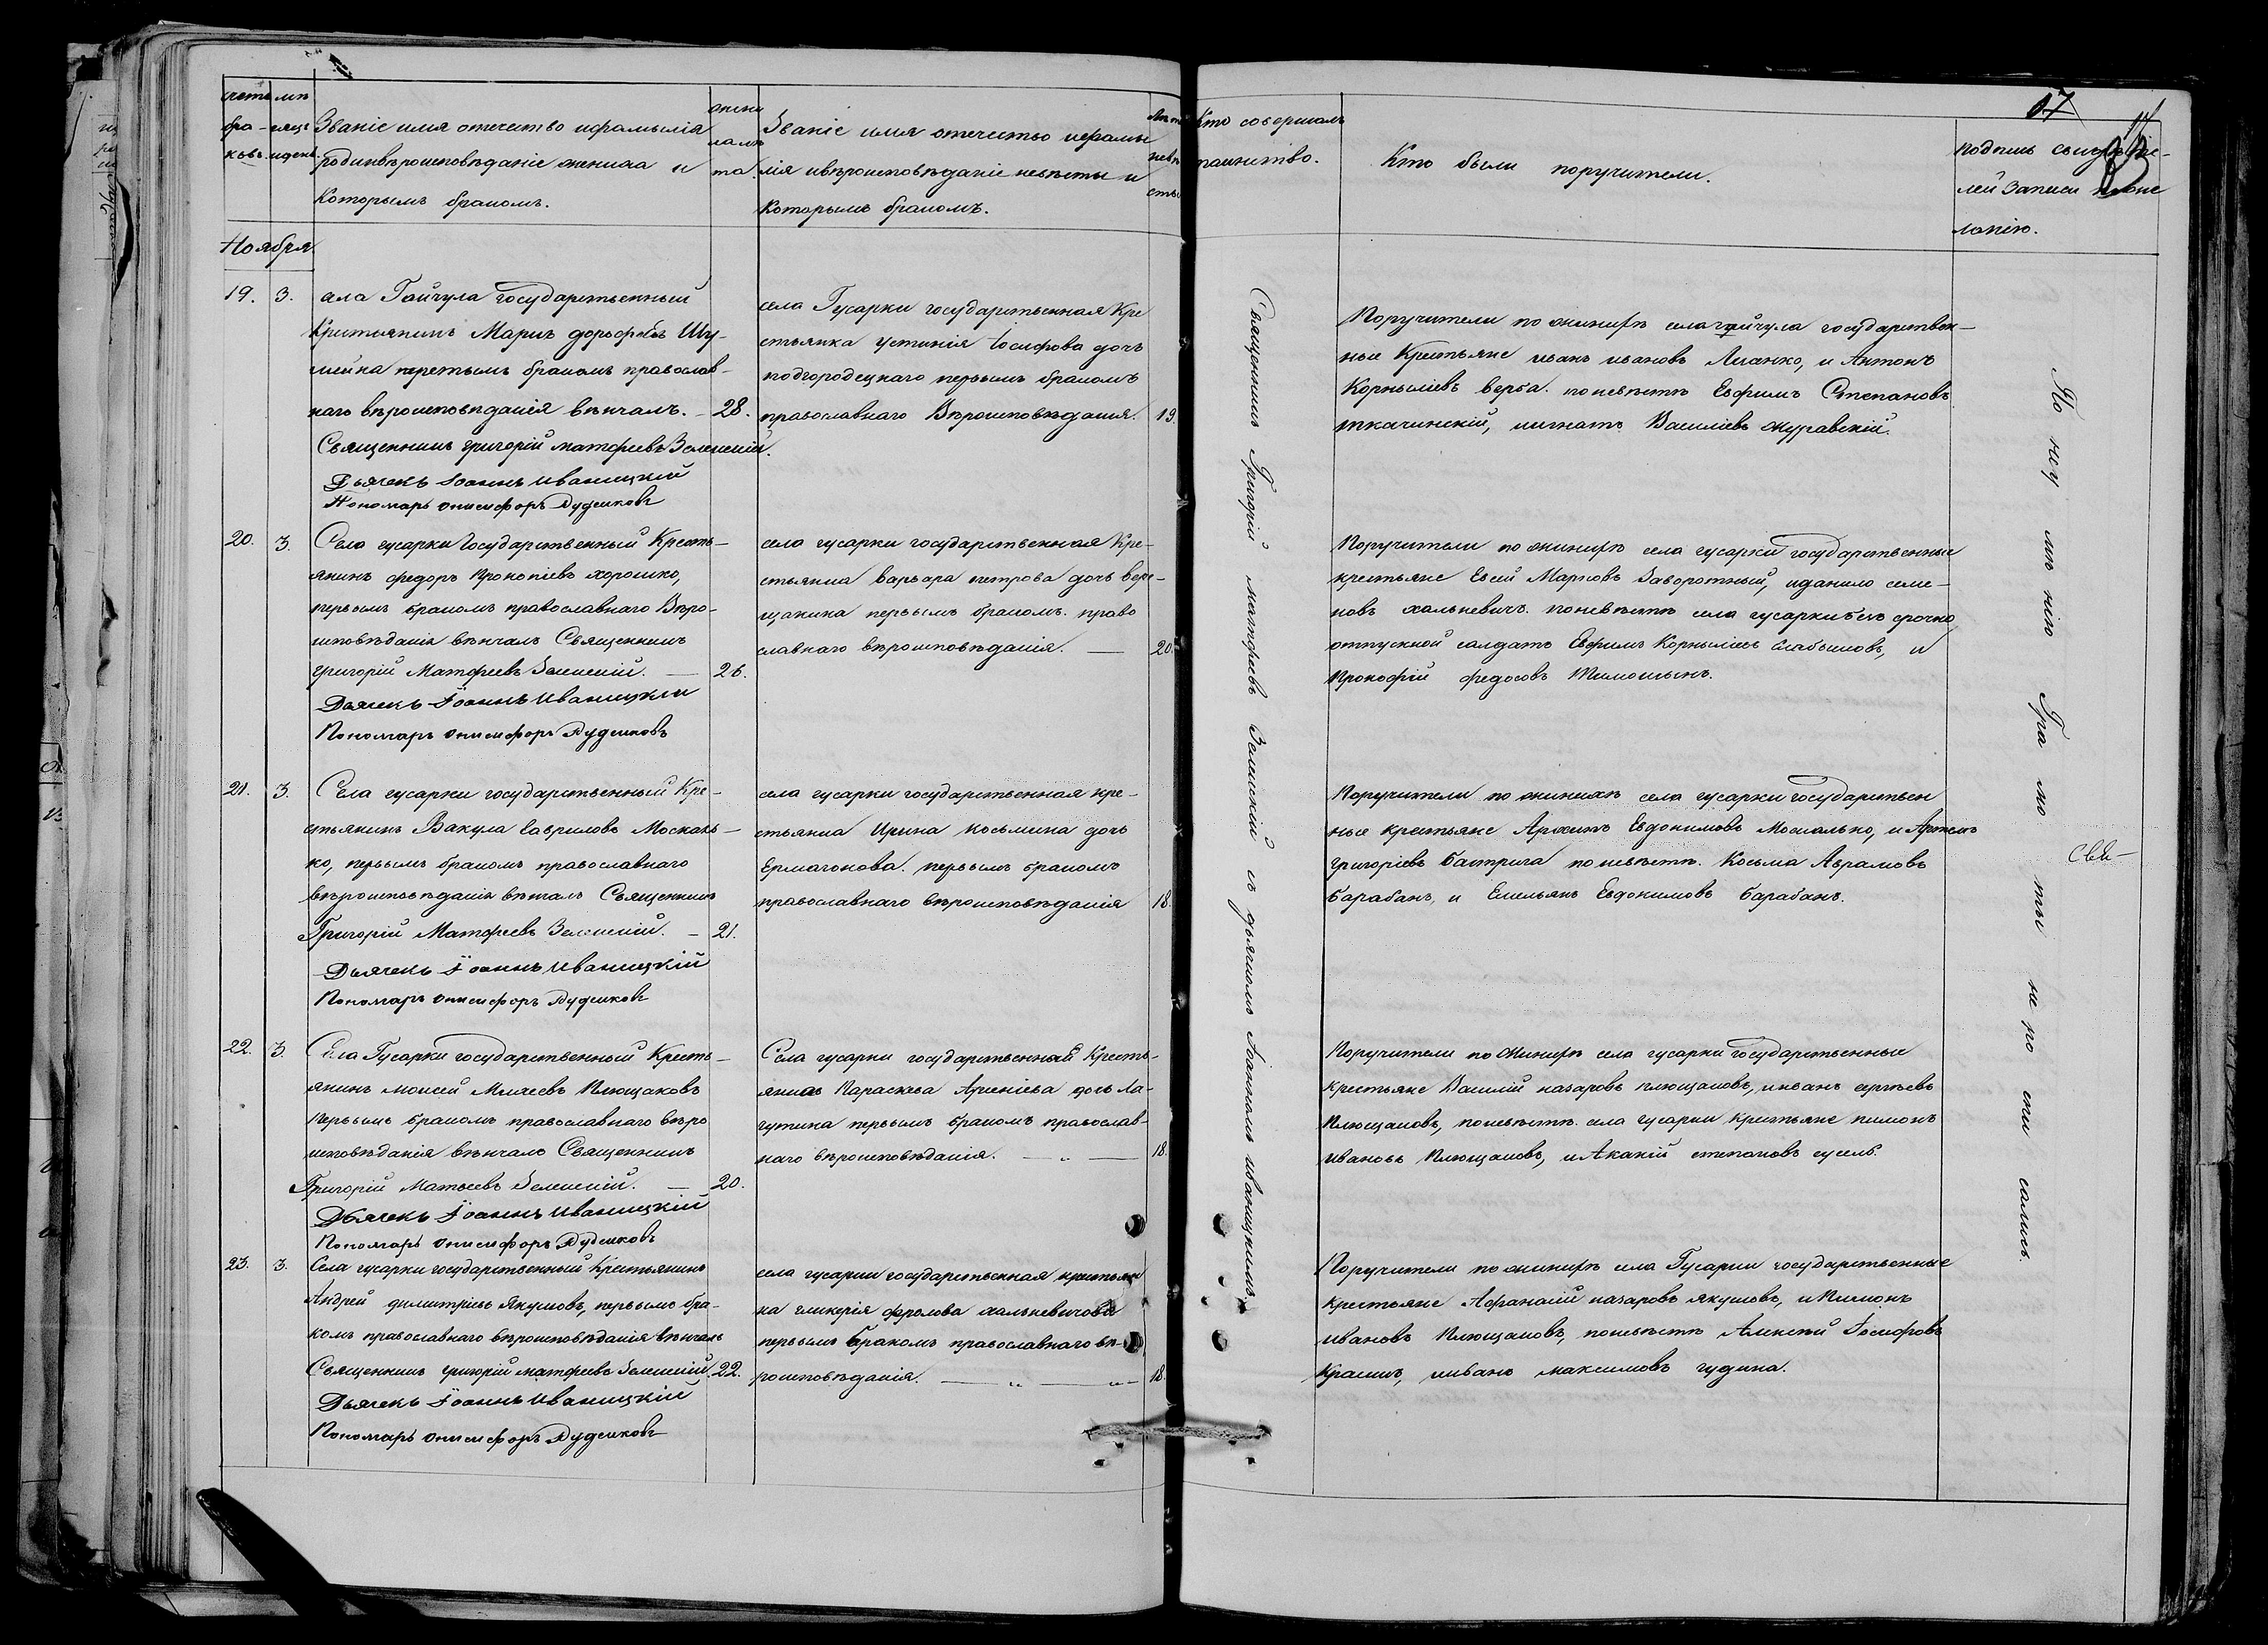 бра- 
Званіе имя отечество ифамилія
родивѣроисповѣданіе жениха и
Которымъ бракомъ.
Званіе имя отечетво ифами
лія ивѣроисповѣданіе невѣсты и
Которымъ бракомъ.
Кто совершалъ
таинство.
Кто были поручители.
подпись
лей записи
ланію.
Ноября
19. 3.
села Гайчула государственный
Крестьянинъ Маркъ
наго вѣроисповѣданія вѣнчалъ. - 28.
Священникъ григорій матфеевъ Зеленскій.
Дьячекъ Іоаннъ иваницкій
Пономарь онисифоръ Дудниковъ
села Гусарки государственная Кре
стьянка устинія Іосифова дочь
подгородецкаго первымъ бракомъ
православнаго Вѣроисповѣданія. 19
Поручители по женихѣ села гайчула государствен-
ные Крестьяне иванъ ивановъ и Антонъ
Корниліевъ верба. поневѣстѣ Евфимъ Степановъ
ткачинскій, иигнатъ Василіевъ журавскій.
20. 3.
Села гусарки Государственный Кресть-
янинъ федоръ Прокопіевъ хорошко,
первымъ бракомъ православнаго Вѣро-
исповѣданія вѣнчалъ Священникъ
григорій Матфеевъ Зеленскій. — 26.
Дьячекъ Іоаннъ Иваницкій
Пономарь онисифоръ Дудниковъ
села гусарки государственная Кре-
стьянка варвара петрова дочь вере-
щакина первымъ бракомъ. право
славнаго вѣроисповѣданія. — 20.
Поручители по женихѣ села гусарки государственные
крестьяне Евсей Марковъ Заворотный, иданило семе-
новъ халкевичъ. поневѣстѣ села гусарки безъ срочно
отпускной салдатъ Евфимъ Корниліевъ и
Прокофій федосовъ Тимошинъ.
21. 3.
Села гусарки государственный Кре-
стьянинъ Вакула Гавриловъ Москаль-
ко, первымъ бракомъ православнаго
вѣроисповѣданія вѣнчалъ Священникъ
Григорій Матфеевъ Зеленскій. - 21.
Дьячекъ Іоаннъ Иваницкій
Пономарь онисифоръ Дудниковъ
села гусарки государственная кре-
стьянка Ирина косьмина дочь
Ермачонкова. первымъ бракомъ
православнаго вѣроисповѣданія 18.
Поручители по женихѣ села гусарки государствен
ные крестьяне Архипъ Евдокимовъ Москалько, и Артемъ
григоріевъ поневѣстѣ. Косьма Аврамовъ
барабанъ, и Емельянъ Евдокимовъ барабанъ.
22. 3.
Села Гусарки государственный Кресть-
янинъ моисей Михеевъ Плющаковъ
первымъ бракомъ православнаго вѣро
исповѣданія вѣнчалъ Священникъ
Григорій Матвеевъ Зеленскій. — 20.
Дьячекъ Іоаннъ Иваницкій
Пономарь онисифоръ Дудниковъ
Села гусарки государственная Кресть-
янка Параскева Арсеніева дочь Ла-
гутина первымъ бракомъ православ-
наго вѣроисповѣданія. — „ — 18.
Поручители по Женихѣ села гусарки государственные
крестьяне Василій назаровъ плющаковъ, ииванъ сергѣевъ
Плющаковъ, поневѣстѣ. села гусарки крестьяне пимонъ
ивановъ Плющаковъ, иАкакій степановъ
23. 3.
Села гусарки государственный Крестьянинъ
Андрей димитріевъ Якушовъ, первымъ бра-
комъ православнаго вѣроисповѣданія вѣнчалъ
Священникъ григорій матфеевъ Зеленскій. 22.
Дьячекъ Іоаннъ Иваницкій
Пономарь онисифоръ Дудниковъ
села гусарки государственная крестьян
ка гликерія фролова халкевичова
первымъ бракомъ православнаго вѣ-
роисповѣданія. — „ — „ — 18.
Поручители по женихѣ села Гусарки государственные
Крестьяне Афанасій назаровъ якушовъ, и Пимонъ
ивановъ Плющаковъ, поневѣстѣ Алексѣй Іосифовъ
ииванъ максимовъ гудина.
Священникъ Григорій матфеевъ Зеленскій съ дьячкомъ Іоанномъ иваницкимъ.
По неу мѣ нію Гра мо ты не ро спи сались.